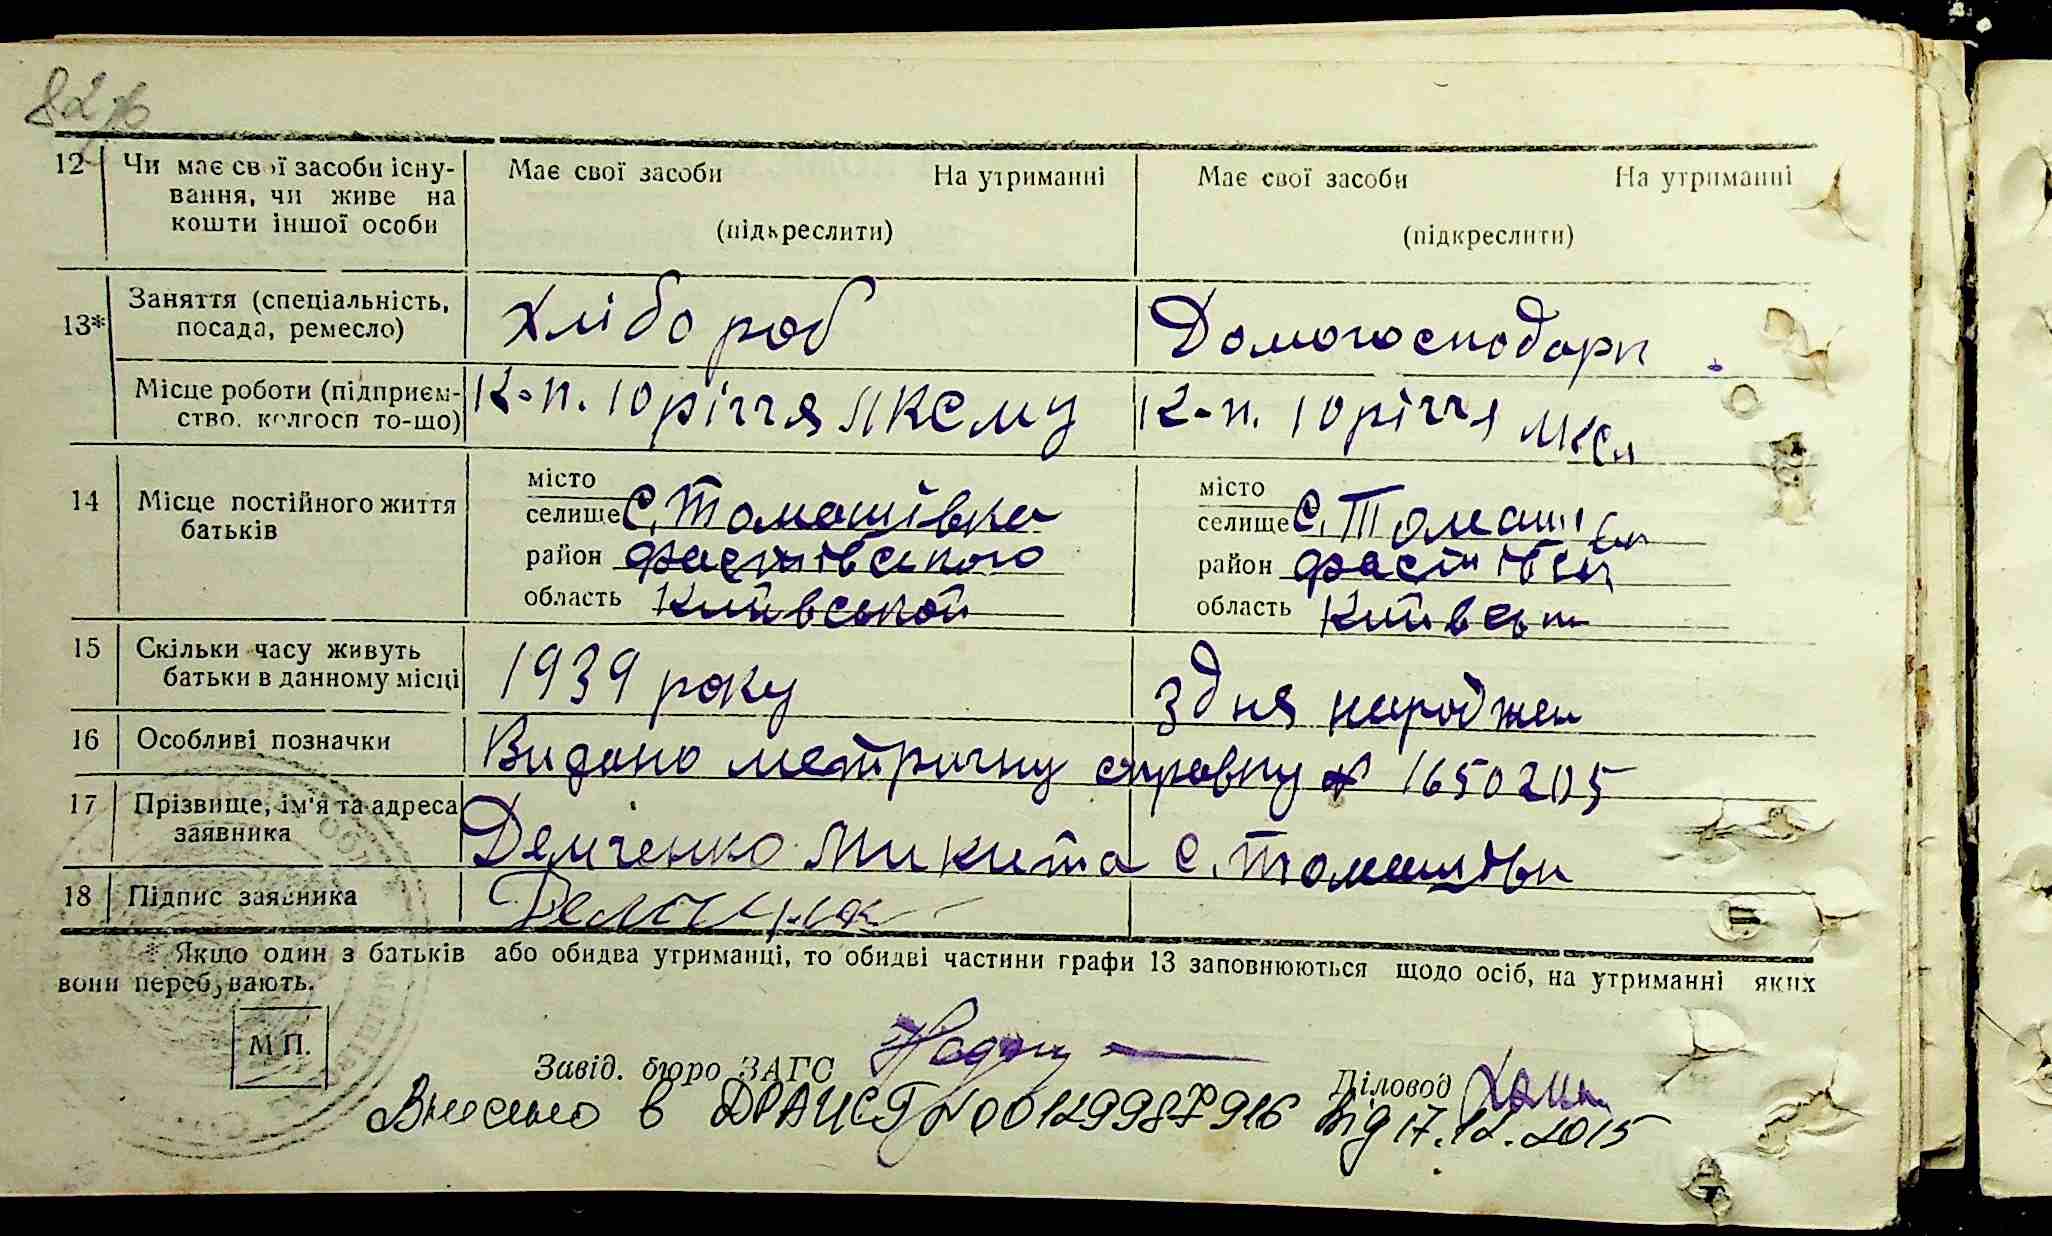 82
12 Чи має свої засоби існу-
вання, чи живе на
кошти іншої особи
Має свої засоби На утриманні
(підкреслити)
Має свої засоби На утриманні
(підкреслити)
13* Заняття (спеціальність,
посада, ремесло)
Хлібороб
Домогосподарк
Місце роботи (підприєм-
ство, колгосп то-що)
К-п. 10 річчя ЛКСМУ
К-п. 10 річчя
14 Місце постійного життя
батьків
місто
селище С. Томашівка
район Фастівського
область Київської
місто
селище С. Томашівк
район Фастівськ
область Київськ
15 Скільки часу живуть
батьки в данному місці
1939 року
З дня народжен
16 Особливі позначки
Видано метричну справку № 1650205
17 Прізвище, ім'я та адреса
заявника
Демченко Микита С. Томашівк
18 Підпис заявника
* Якщо один з батьків або обидва утриманці, то обидві частини графи 13 заповнюються щодо осіб, на утриманні яких
вони перебувають.
М П.
Завід. бюро ЗАГС
Діловод
Внесено в ДРАЦСГ N 00129987916 від 17.12.2015